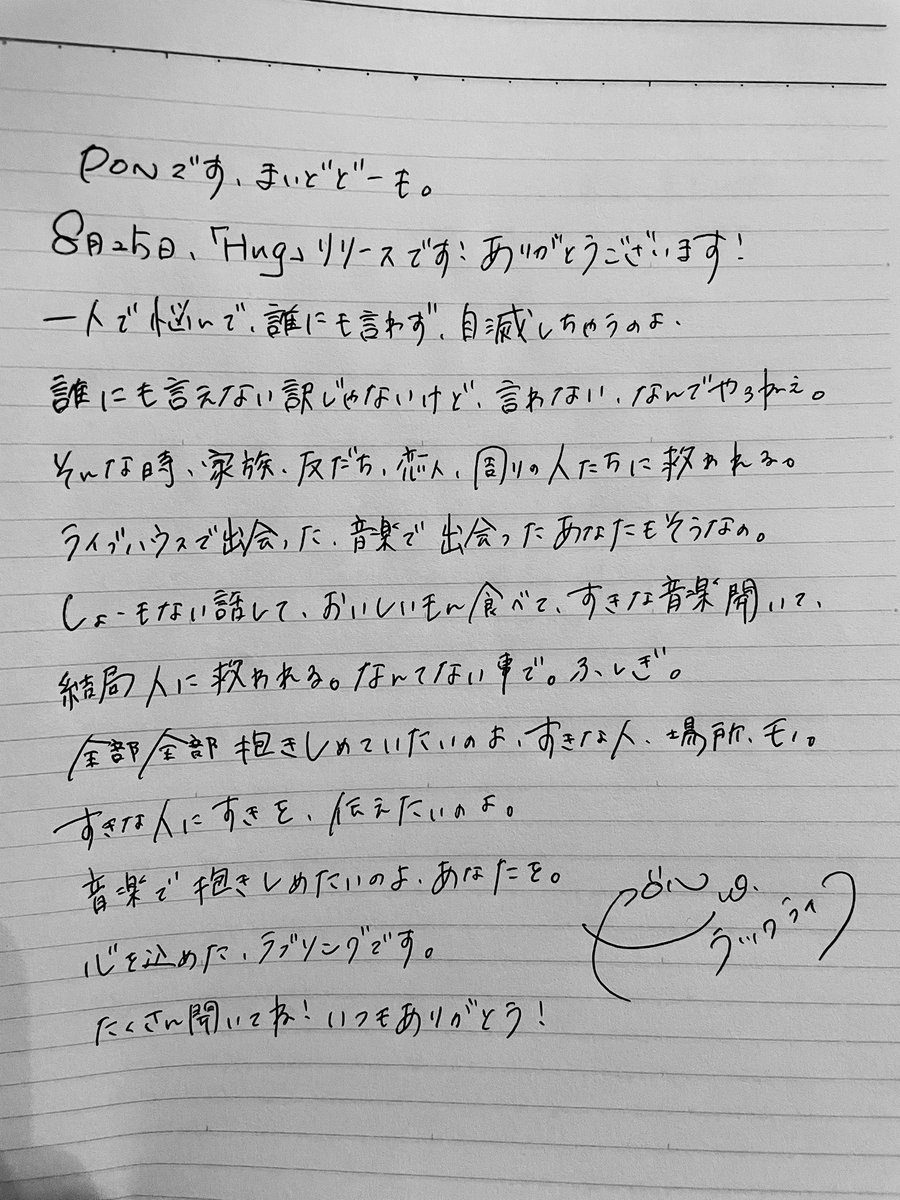 PONです、まいどどーも。
8月25日、「Hug」リリースです!ありがとうございます!
一人で悩んで、誰にも言わず、自滅しちゃうのよ、
誰にも言えない訳じゃないけど、言わない、なんでやろねぇ。
そんな時、家族、友だち、恋人、周りの人たちに救われる。
ライブハウスで出会った、音楽で出会ったあなたもそうなの。
しょーもない話して、おいしいもん食べて、すきな音楽聞いて、
結局人に救われる。なんてない事で。ふしぎ。
全部全部抱きしめていたいのよ、すきな人、場所、モノ。
すきな人にすきを、伝えたいのよ。
音楽で抱きしめたいのよ、あなたを。
心を込めた、ラブソングです。
たくさん聞いてね!いつもありがとう!
ラックライ